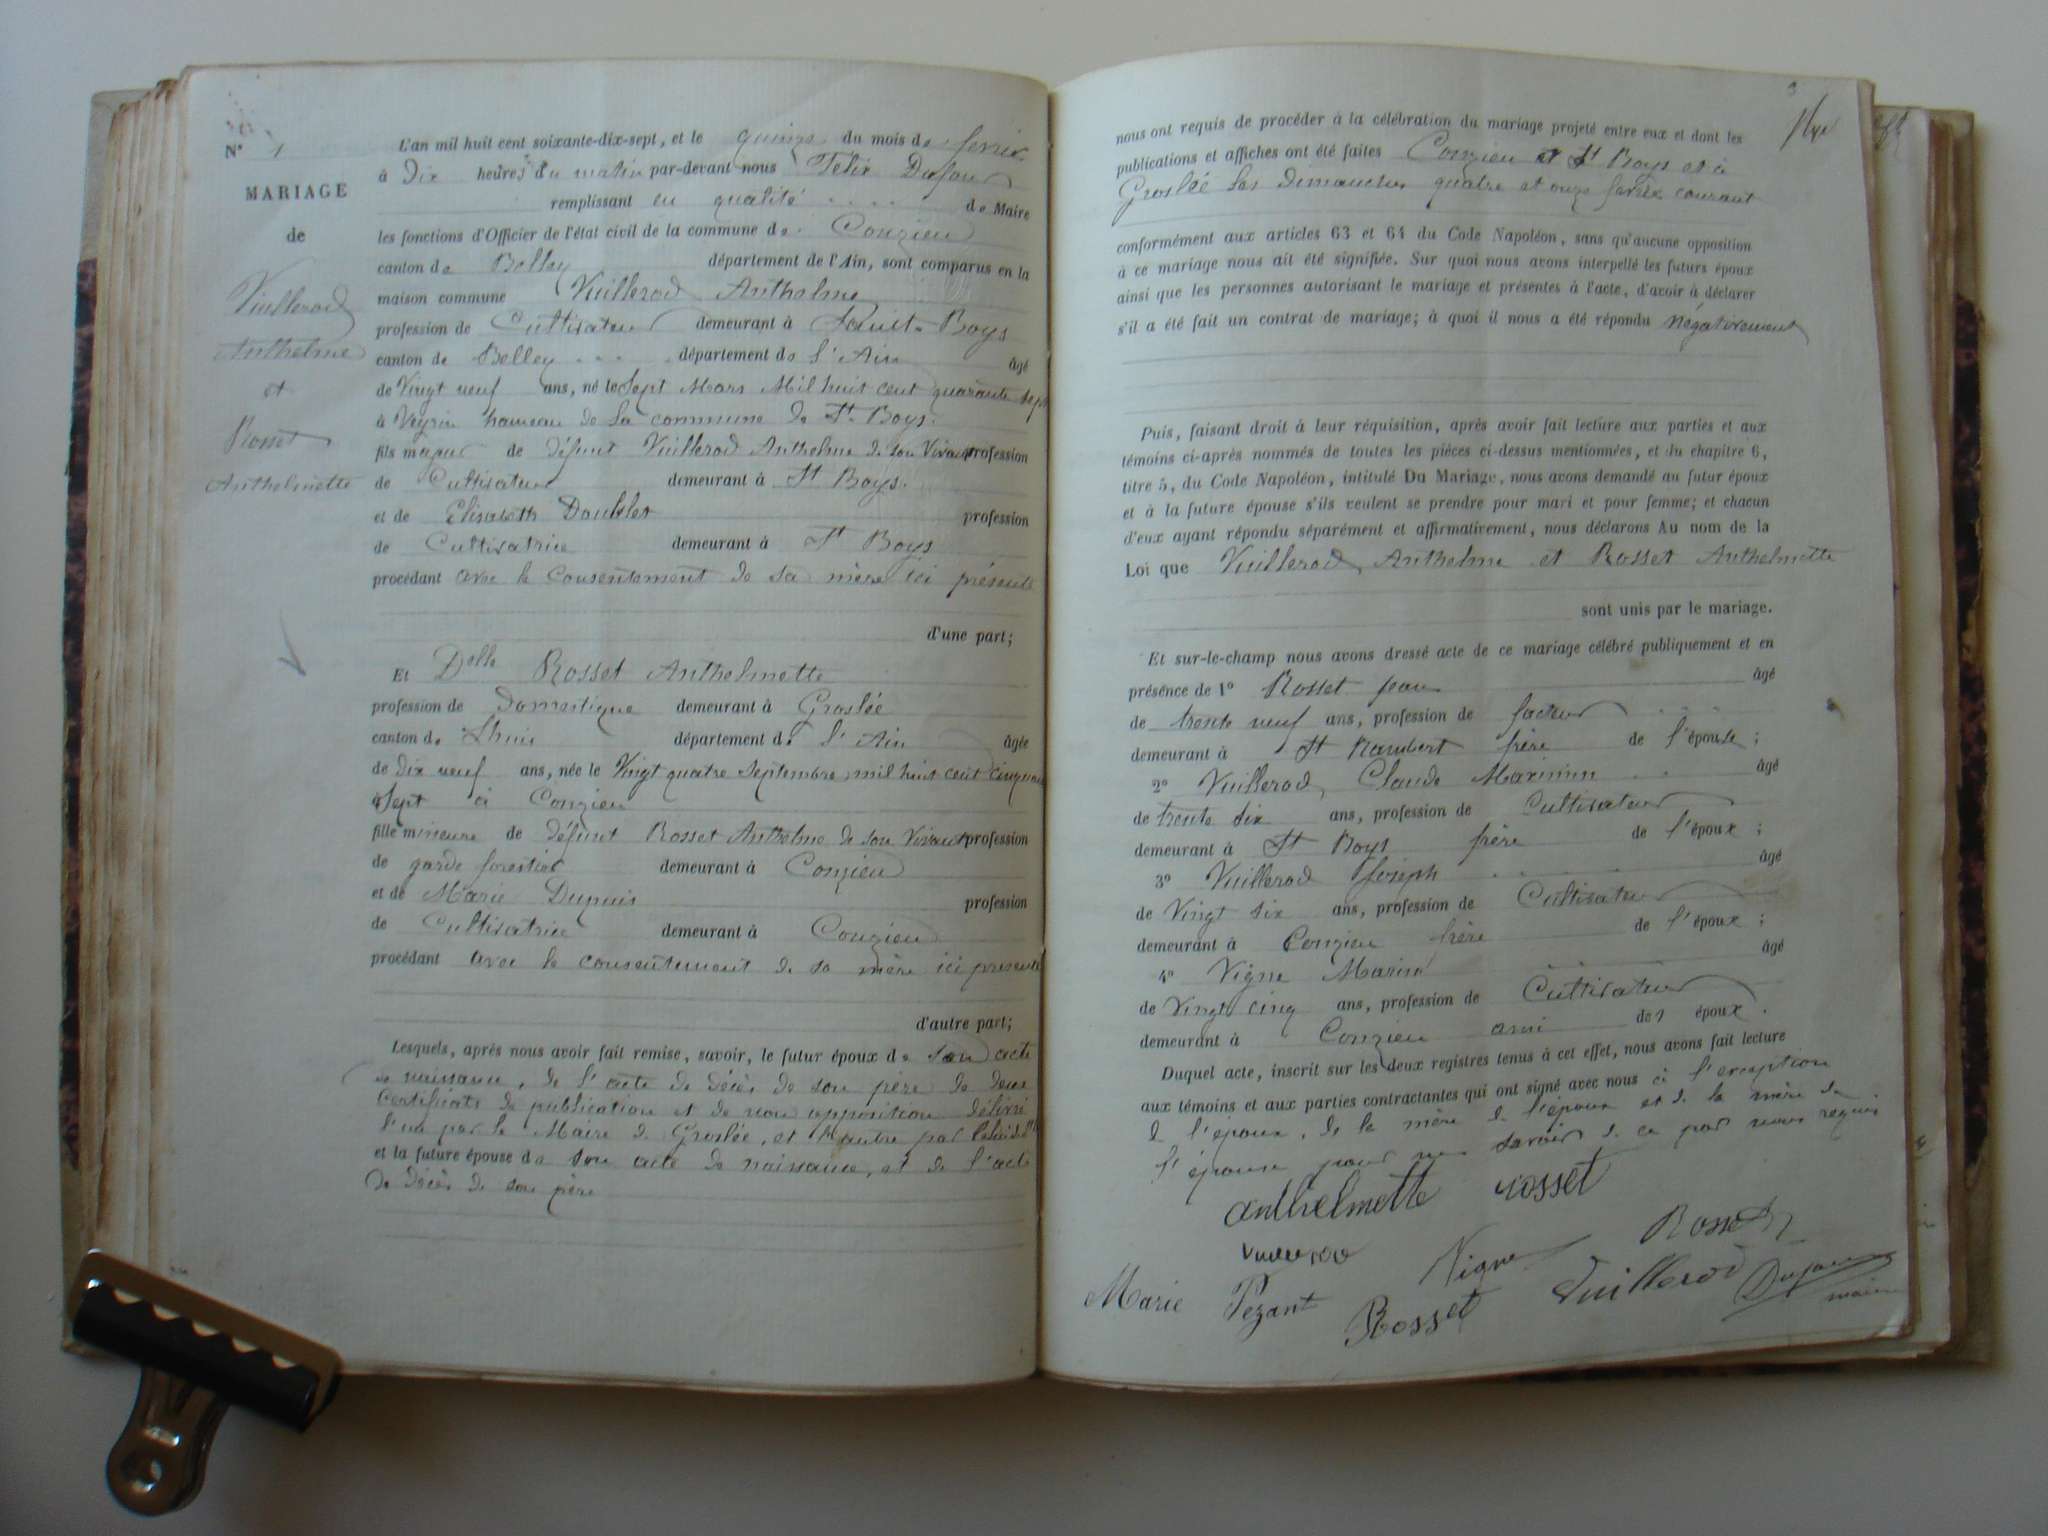 N° 1
MARIAGE
de
Vuillerod
Anthelme
et
Rosset
Anthelmette
L'an mil huit cent soixante-dix-sept, et le quinze du mois de fevrier
à Dix heures du matin par-devant nous Félix Dufour
remplissant en qualité de Maire
les fonctions d'Officier de l'état civil de la commune de Conzieu
canton de Belley département de l'Ain, sont comparus en la
maison commune Vuillerod Anthelme
profession de Cultivateur demeurant à Saint-Boys
canton de Belley département de l'Ain âgé
de Vingt neuf ans, né le Sept Mars Mil huit cent quarante sept
à Veyrin hameau de la commune de St Boys.
fils majeur de défunt Vuillerod Anthelme de son Vivant profession
de Cultivateur demeurant à St Boys.
et de Elisabeth Doublet profession
de Cultivatrice demeurant à St Boys
procédant avec le consentement de sa mère ici présente
d'une part;
Et Delle Rosset Anthelmette
profession de Domestique demeurant à Groslée
canton de Lhuis département de l'Ain âgée
de dix neuf ans, née le Vingt quatre Septembre mil huit cent cinquante
Sept à Conzieu
fille mineure de défunt Rosset Anthelme de son Vivant profession
de garde forestier demeurant à Conzieu
et de Marie Dupuis profession
de Cultivatrice demeurant à Conzieu
procédant avec le consentement de sa mère ici presente
d'autre part;
Lesquels, après nous avoir fait remise, savoir, le futur époux de son acte
de naissance, de l'acte de décès de son père de deux
certificats de publication et de non opposition délivré
l'un par le Maire de Groslée, et l'autre par
et la future épouse de son acte de naissance, et de l'acte
de décès de son père
3
nous ont requis de procéder à la célébration du mariage projeté entre eux et dont les
publications et affiches ont été faites Conzieu et St Boys et à
Groslée les dimanches quatre et onze fevrier courant
conformément aux articles 63 et 64 du Code Napoléon, sans qu'aucune opposition
à ce mariage nous ait été signifiée. Sur quoi nous avons interpellé les futurs époux
ainsi que les personnes autorisant le mariage et présentes à l'acte, d'avoir à déclarer
s'il a été fait un contrat de mariage; à quoi il nous a été répondu négativement
Puis, faisant droit à leur réquisition, après avoir fait lecture aux parties et aux
témoins ci-après nommés de toutes les pièces ci-dessus mentionnées, et du chapitre 6,
titre 5, du Code Napoléon, intitulé Du Mariage, nous avons demandé au futur époux
et à la future épouse s'ils veulent se prendre pour mari et pour femme; et chacun
d'eux ayant répondu séparément et affirmativement, nous déclarons Au nom de la
Loi que Vuillerod Anthelme et Rosset Anthelmette
sont unis par le mariage.
Et sur-le-champ nous avons dressé acte de ce mariage célébré publiquement et en
présence de 1° Rosset Jean âgé
de trente neuf ans, profession de facteur
demeurant à St Rambert frère de l'épouse;
2° Vuillerod Claude Marinin âgé
de trente six ans, profession de Cultivateur
demeurant à St Boys frère de l'époux;
3° Vuillerod Joseph âgé
de Vingt six ans, profession de Cultivateur
demeurant à Conzieu frère de l'époux;
4° Vigne Marin âgé
de Vingt cinq ans, profession de Cultivateur
demeurant à Conzieu ami de l'époux.
Duquel acte, inscrit sur les deux registres tenus à cet effet, nous avons fait lecture
aux témoins et aux parties contractantes qui ont signé avec nous à l'exception
de l'époux, de la mère de l'époux et de la mère de
l'épouse pour ne savoir de ce par nous requis
anthelmette rosset
Rosset
Vigne
Marie Pezant Rosset Vuillerod Dufour
maire